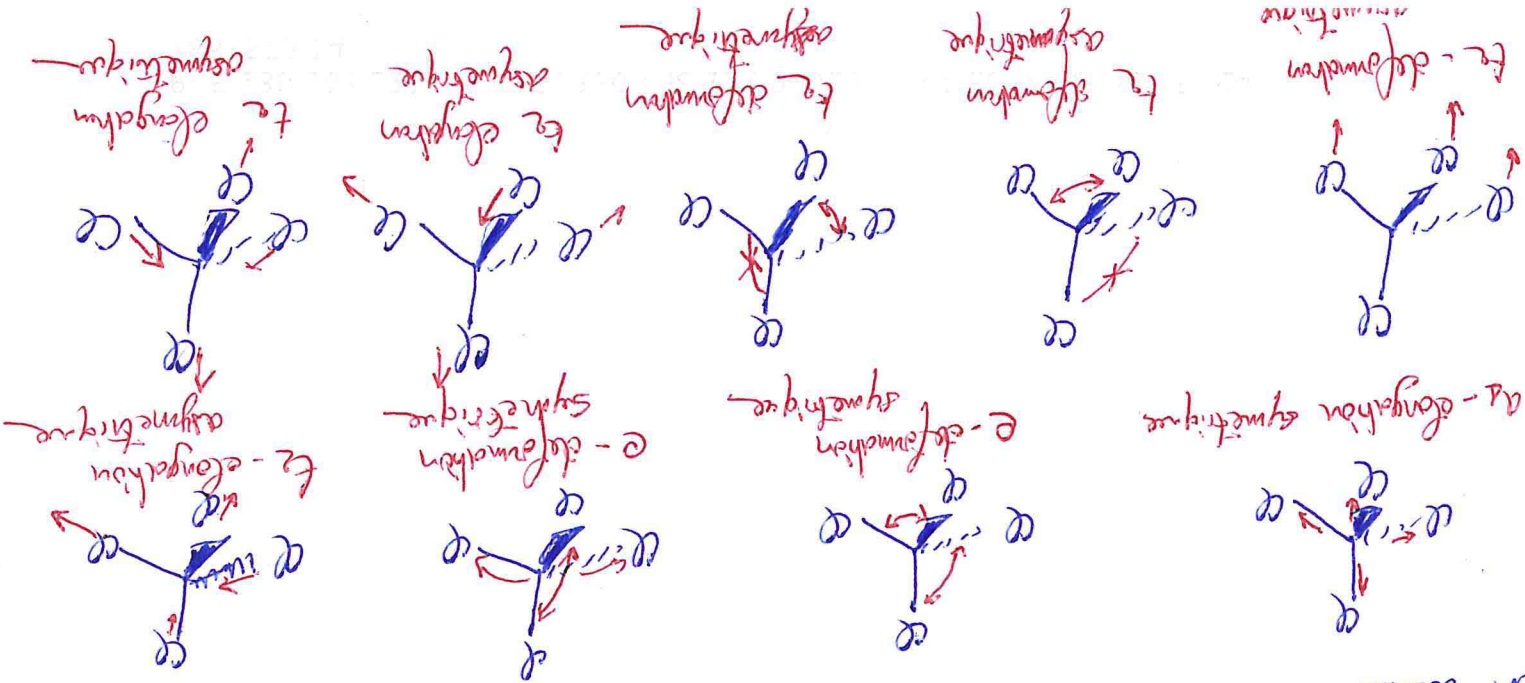 Cl
Cl Cl
Cl
a1 - elongation symetrique
Cl
Cl Cl
Cl
e - deformation
symetrique
Cl
Cl Cl
Cl
e - deformation
symetrique
Cl
Cl Cl
Cl
t2 - elongation
asymetrique
Cl
Cl Cl
Cl
t2 - deformation
Cl
Cl Cl
Cl
t2 deformation
asymetrique
Cl
Cl Cl
Cl
t2 deformation
asymetrique
Cl
Cl Cl
Cl
t2 elongation
asymetrique
Cl
Cl Cl
Cl
t2 elongation
asymetrique